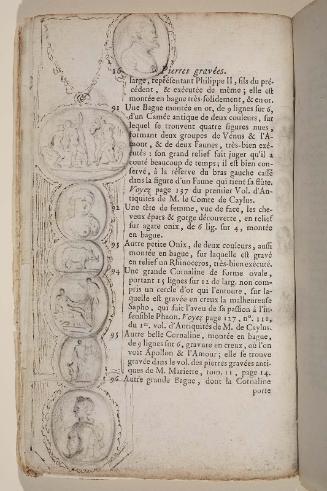 16 Pierres gravées.
large, représentant Philippe II, fils du pré-
cédent, & exécutée de même; elle est
montée en bague très-solidement, & en or.
91 Une Bague montée en or, de 9 lignes sur 6,
d'un Camée antique de deux couleurs, sur
lequel se trouvent quatre figures nues,
formant deux groupes de Vénus & l'A-
mour, & de deux Faunes, très-bien exé-
cutés: son grand relief fait juger qu'il a
couté beaucoup de temps; il est bien con-
servé, à la réserve du bras gauche cassé
dans la figure d'un Faune qui tient sa flûte.
Voyez page 137 du premier Vol. d'An-
tiquités de M. le Comte de Caylus.
92 Une tête de femme, vue de face, les che-
veux épars & gorge découverte, en relief
sur agate onix, de 6 lig. sur 4, montée
en bague.
93 Autre petite Onix, de deux couleurs, aussi
montée en bague, sur laquelle est gravé
en relief un Rhinoceros, très-bien exécuté.
94 Une grande Cornaline de forme ovale,
portant 15 lignes sur 12 de larg. non com-
pris un cercle d'or qui l'entoure, sur la-
quelle est gravée en creux la malheureuse
Sapho, qui fait l'aveu de sa passion à l'in-
sensible Phaon. Voyez page 127, n°. 112,
du 1er. vol. d'Antiquités de M. de Caylus.
95 Autre belle Cornaline, montée en bague,
de 9 lignes sur 6, gravure en creux, où l'on
voit Apollon & l'Amour; elle se trouve
gravée dans le vol. des pierres gravées anti-
ques de M. Mariette, tom. 11, page 14.
96 Autre grande Bague, dont la Cornaline
porte